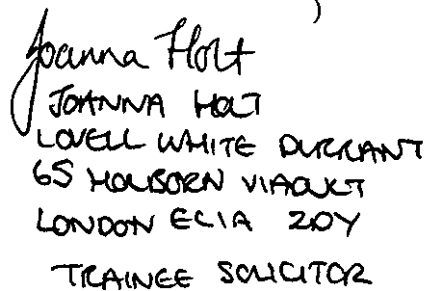 )
Joanna Holt
JOANNA HOLT
LOVELL WHITE DURRANT
65 HOLBORN VIADUCT
LONDON EC1A 2DY
TRAINEE SOLICITOR